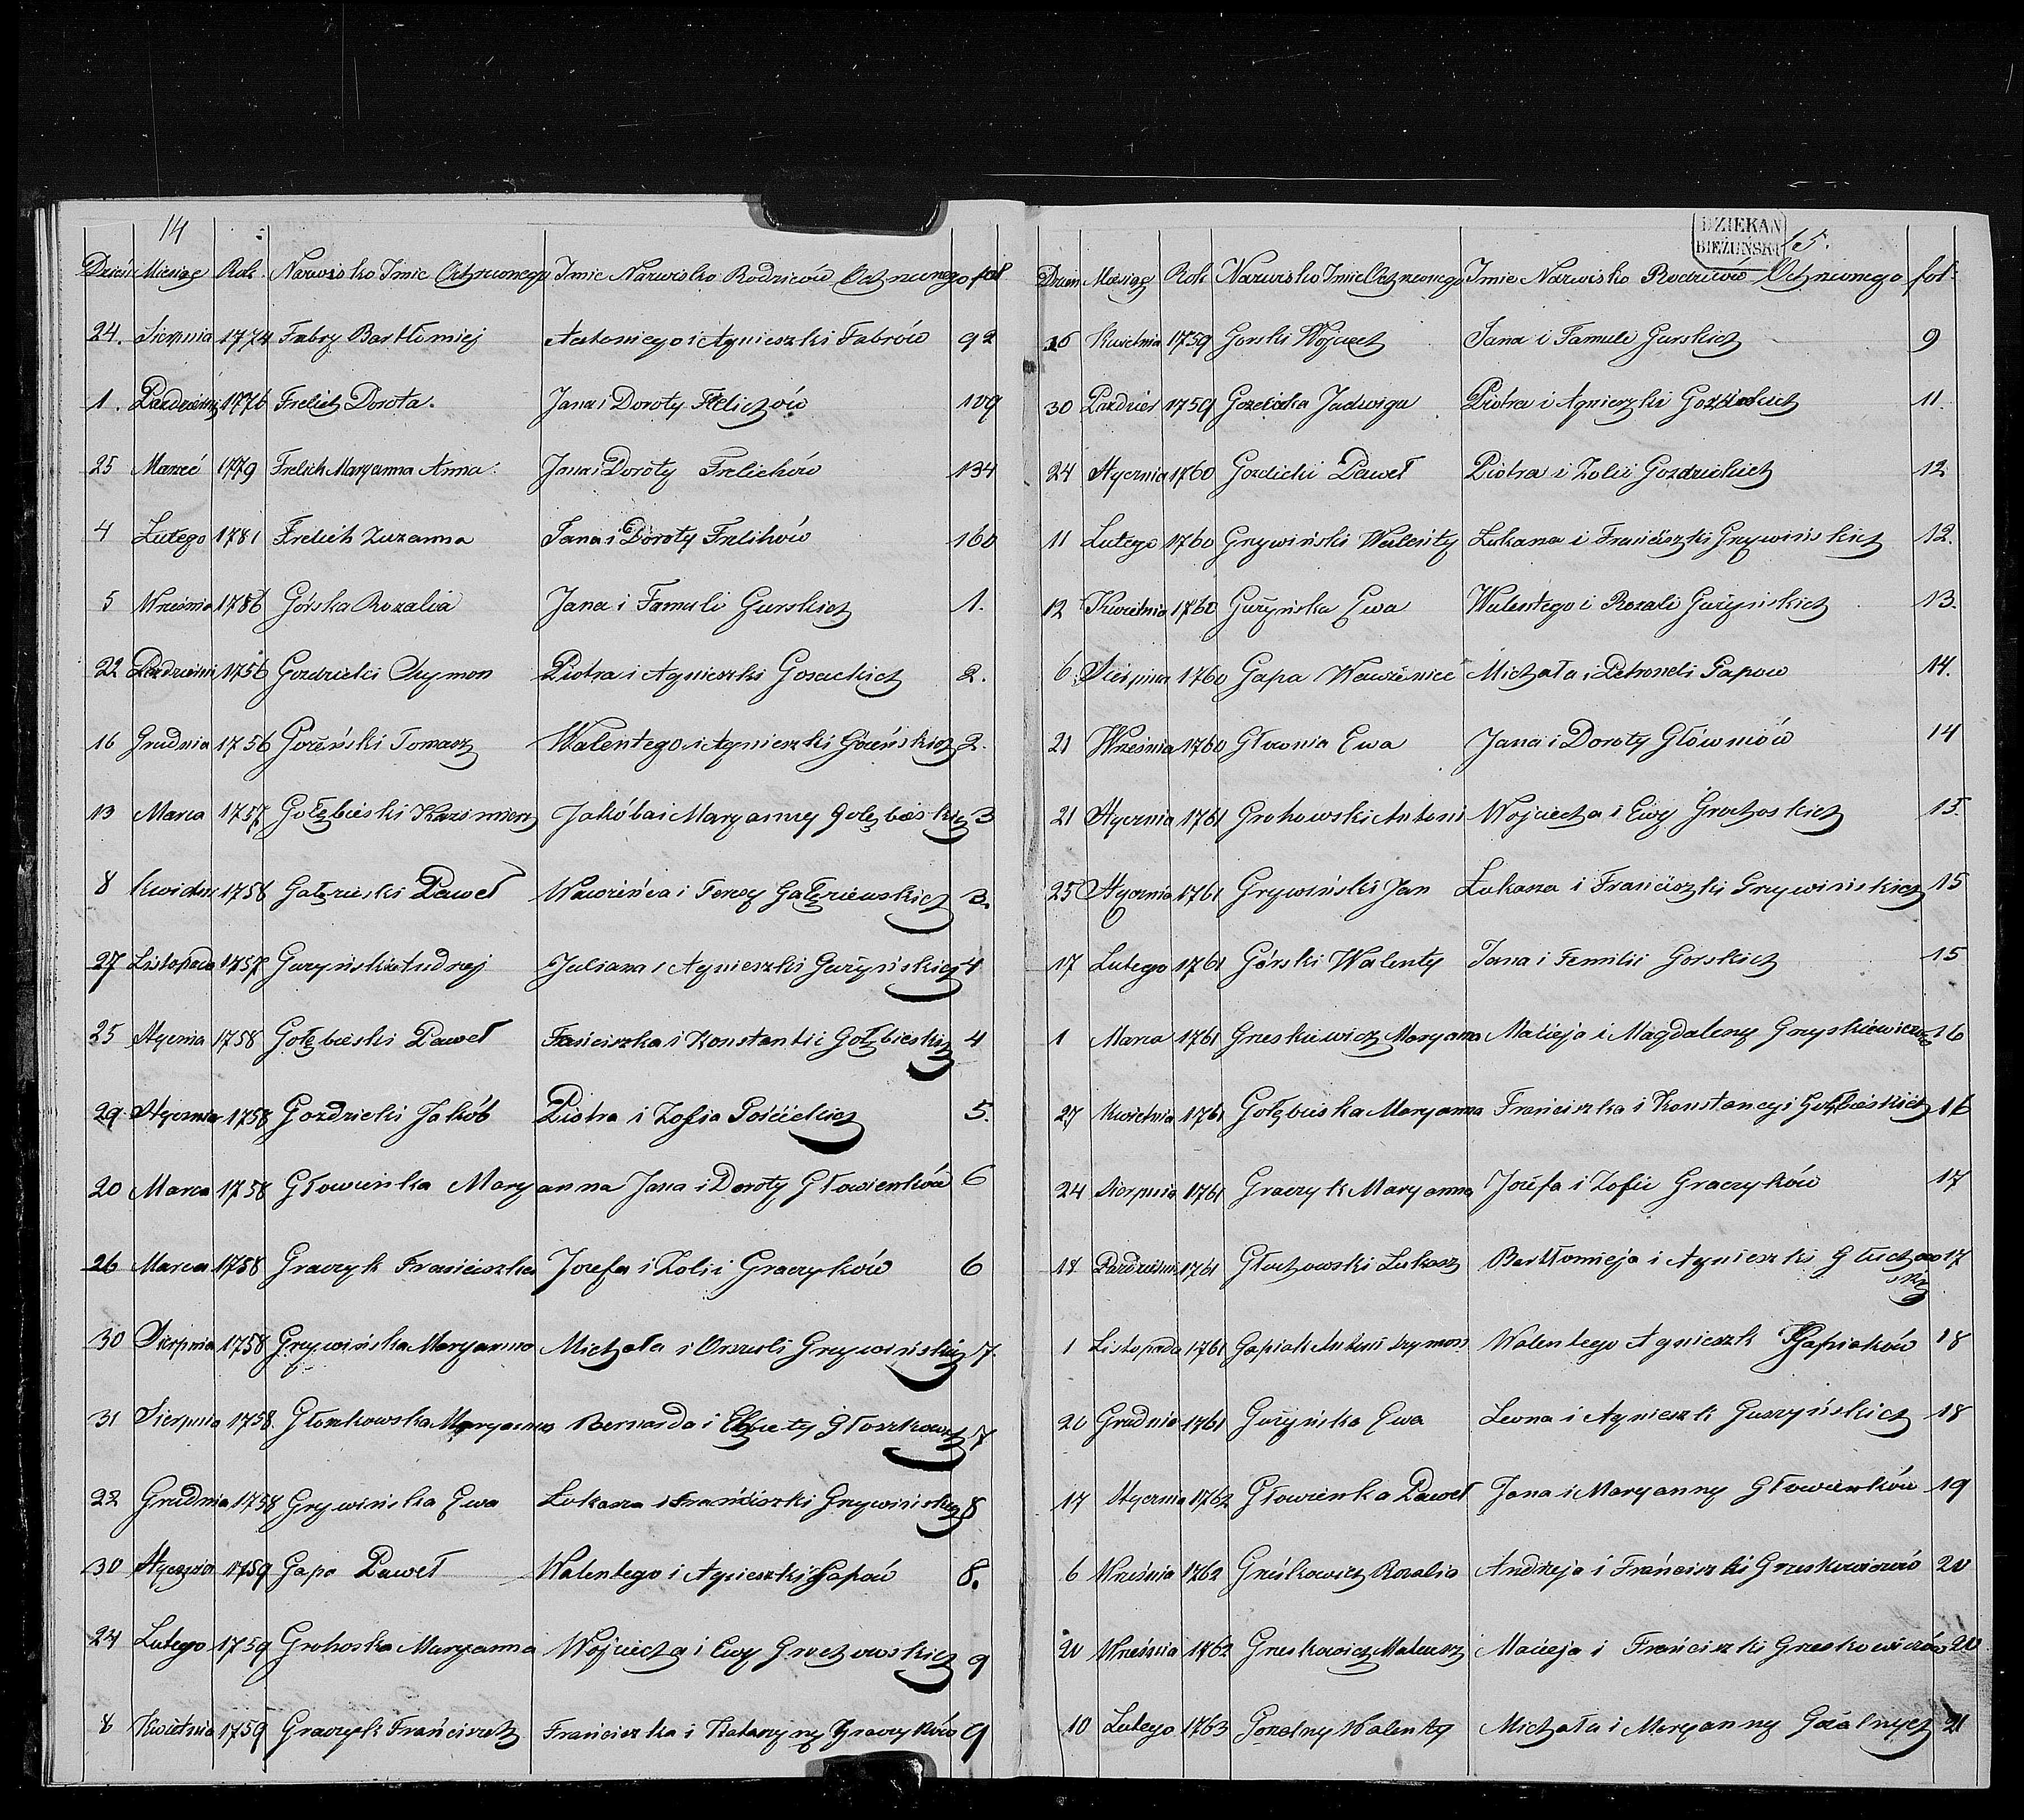 14
Dzień Miesiąc Rok Nazwisko Imie Ochrzconego Imie Nazwisko Rodziców Ochrzconego fol
24. Sierpnia 1774 Fabry Bartłomiej Antoniego i Agnieszki Fabrów 92
1. Październi 1776 Frelich Dorota. Jana i Doroty Frelichów 109
25 Marzec 1779 Frelich Maryanna Anna. Jana i Doroty Frelichów 134
4 Lutego 1781 Frelich Zuzanna Jana i Doroty Frelihów 160
5 Września 1756 Górska Rozalia Jana i Famuli Gurskich 1.
22 Październi 1756 Gozdzicki Szymon Piotra i Agnieszki Gosackich 2.
16 Grudnia 1756 Gozeński Tomasz Walentego i Agnieszki Gozeńskich 2.
13 Marca 1757 Gołębieski Kazimierz Jakóba i Maryanny Gołębieskich 3
8 Kwietni 1756 Gałęzieski Paweł Wawrzeńca i Teresy Gałęziewskich 3.
27 Listopada 1757 Guzyński Andrzej Juliana i Agnieszki Gużyńskich 4
25 Stycznia 1758 Gołębieski Paweł Fańciszka i Konstantii Gołębieskich 4
29. Stycznia 1758 Gozdzicki Jakób Piotra i Zofia Gościckich 5.
20 Marca 1758 Głowieńka Maryanna Jana i Doroty Głowienków 6
26 Marca 1758 Graczyk Franciszka Jozefa i Zofii Graczyków 6
30 Sierpnia 1758 Grzywińska Maryanna Michała i Orszuli Grzywińskich 7.
31 Sierpnia 1758. Głoszkowska Maryanna Bernarda i Elżbiety Głoszkowsk 7
22 Grudnia 1758 Grzywińska Ewa Łukasza i Franciszki Grzywińskich 8
30 Stycznia 1759 Gapa Paweł Walentego i Agnieszki Gapów 8.
24 Lutego 1759 Grohoska Maryanna Wojciecha i Ewy Grochowskich 9
8 Kwietnia 1759 Graczyk Frańciszek Franciszka i Katarzyny Graczyków 9
DZIEKAN
BIEŻUŃSKI
15.
Dzień Miesiąc Rok Nazwisko Imie Ochrzconego Imie Nazwisko Rodziców Ochrzconego fol.
16 Kwietnia 1759 Gorski Wojciech Jana i Famuli Gurskich 9
30 Paździer 1759 Jadwiga Piotra i Agnieszki 11.
24 Stycznia 1760 Gozdicki Paweł Piotra i Zofii Gozdzickich 12
11 Lutego 1760 Grzywiński Walenty Łukasza i Franciszki Grzywińskich 12.
12 Kwietnia 1760 Gużyńska Ewa Walentego i Rozali Gużyńskich 13.
6 Sierpnia 1760 Gapa Wawrzeniec Michała i Petroneli Gapow 14.
21 Września 1760 Głownia Ewa Jana i Doroty Głowniów 14
21 Stycznia 1761 Grohowski Antoni Wojciecha i Ewy Grochoskich 15.
25 Stycznia 1761 Grzywiński Jan Łukasza i Franciszki Grzywińskich 15
17 Lutego 1761 Górski Walenty Jana i Femilii Gorskich 15
1 Marca 1761 Greskiewicz Maryanna Macieja i Magdaleny Gryskiewiczow 16
27 Kwietnia 1761 Gołębieska Maryanna Franciszka i Konstancyi Gołębieskich 16
24 Sierpnia 1761 Graczyk Maryanna Józefa i Zofii Graczyków 17
18 Październi 1761 Głuchowski Łukasz Bartłomieja i Agnieszki Głuchow 17
skich
1 Listopada 1761 Gapiak Antoni Szymon Walentego Agnieszk Gapiaków 18
20 Grudnia 1761 Gużyńska Ewa Leona i Agnieszk Guszyńskich 18
17 Stycznia 1762 Głowienka Paweł Jana i Maryanny Głowienków 19
6 Września 1762 Greśkowicz Rozalia Andrzeja i Franciszki Greskiewiczów 20
20 Września 1762 Greskowicz Mateusz Macieja i Franciszki Greskowiczów 20
10 Lutego 1763 Gozalny Walenty Michała i Maryanny Gozalnych 21